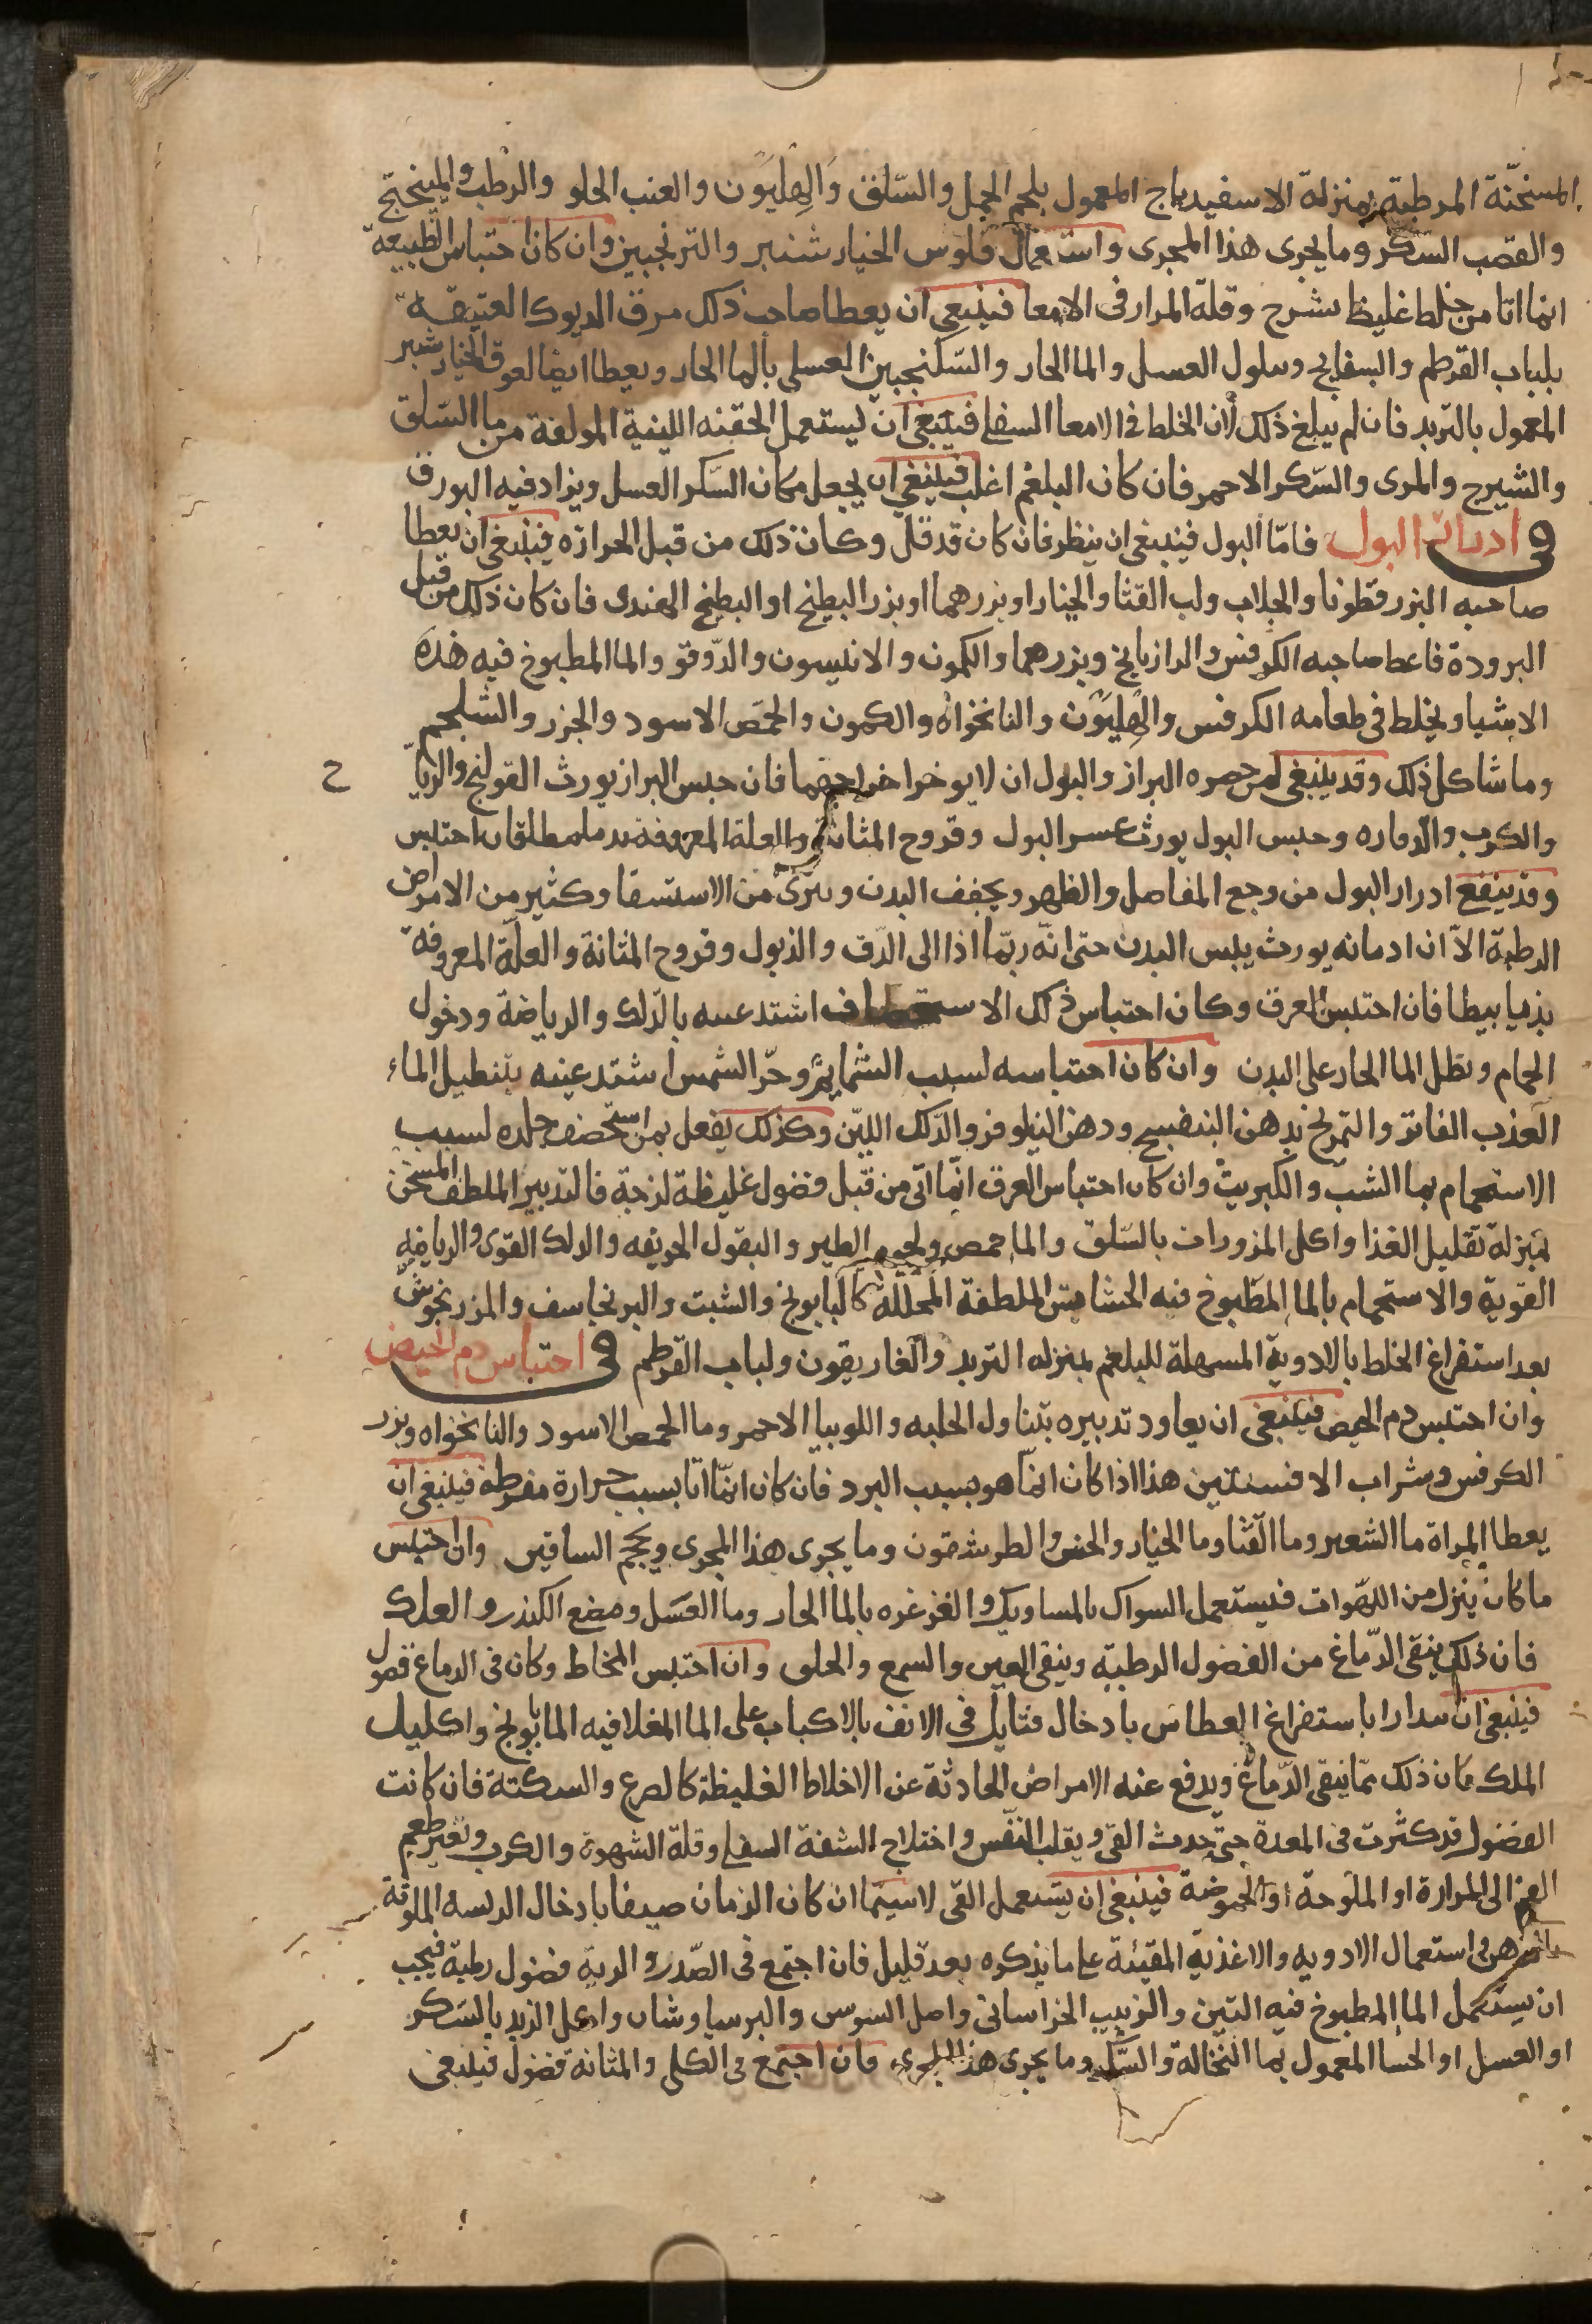 المسخّنة المرطبة بمنزلة الاسفيدباج المعمول بلحم الحمل والسّلق وَالهِليَون والعنب الحلو والرطب والميبختج
والقصب السّكر وما يجرى هذا المجرى واستعمال فلوس الخيار شنبر والترنجبين وان كان احتباس الطبيعة
انما اتا من خلط غليظ لزج وقلة المرار فى الامعا فينبغى ان يعطا صاحب ذلك مرق الديوك العتيقه
بلباب القرطم والبسفايج وسلول العسل والما الحار والسّكنجبين العسلى بالما الحار ويعطا ايضا لعوق الخيار شنبر
المعمول بالتربد فان لم يبلغ ذلك لان الخلط فى الامعا السفلى فينبغى ان يستعمل الحقنه اللينة المولفة من ما السّلق
والشيرج والمرى والسّكر الاحمر فان كان البلغم اغلب فينبغى ان يجعل مكان السّكر العسل ويزاد فيه البورق
فى ادرار البول فامّا البول فينبغى ان ينظر فان كان قد قل وكان ذلك من قبل الحرارة فينبغى ان يعطا
صاحبه البزرقطونا والجلاب ولب القثا والخيار او بزرهما او بزر البطيخ او البطيخ الهندى فان كان ذلك من قبل
البرودة فاعط صاحبه الكرفس والرازيانج وبزرهما والكمون والانيسون والدّوقو والما المطبوخ فيه هذه
الاشيا ويخلط فى طعامه الكرفس والهِليَون والنانخواه والكمون والحمّص الاسود والجزر والشلجم
وما شاكل ذلك وقد ينبغى لمن حصره البراز والبول ان لا يوخر اخراجهما فان حبس البراز يورث القولنج والرياح
والكرب والدواره وحبس البول يورث عسر البول وقروح المثانة والعلة المعروفة احتبس
وقد ينفع ادرار البول من وجع المفاصل والظهر ويجفف البدن ويبرى من الاستسقا وكثير من الامراض
الرطبة الاّ ان ادمانه يورث يبس البدن حتى انّه ربّما ادا الى الدّق والذبول وقروح المثانة والعلّة المعروفة
بذيابيطا فان احتبس العرق وكان احتباس ذلك اشتدعيه بالدّلك والرياضة ودخول
الحمام ونطل الما الحار على البدن وان كان احتباسه لسبب الشمايم وحرّ الشمس اشتدعيه بتنطيل الماء
العذب الفاتر والتمريخ بدهن البنفسج ودهن النيلوفر والدّلك الليّن وكذلك يفعل بمن استخصف جلده لسبب
الاستحمام بما الشب والكبريت وان كان احتباس العرق انّما اتى من قبل فضول غليظة لزجة فالتدبير الملطف المسخن
بمنزلة تقليل الغذا واكل المزورات بالسّلق والما حمص ولحوم الطير والبقول الحريفه والدلك القوى والرياضه
القوية والاستحمام بالما المطبوخ فيه الحشايش الملطفة المحللة كالبابونج والشبت والبرنجاسف والمرزنجوش
بعد استفراغ الخلط بالادوية المسهلة للبلغم بمنزله التربد والغاريقون ولباب القرطم فى احتباس دم الحيض
وان احتبس دم الحيض فينبغى ان يعاود تدبيره بتناول الحلبه واللوبيا الاحمر وما الحمص الاسود والنانخواه وبزر
الكرفس وشراب الافسنتين هذا اذا كان انمّا هو بسبب البرد فان كان انمّا اتا بسبب حرارة مفرطة فينبغى ان
يعطا المراة ما الشعير وما القثا وما الخيار والخس والطرشقون وما يجرى هذا المجرى ويحجم الساقين وان احتبس
ما كان ينزل من اللهّوات فيستعمل السواك بالمساويك والغرغره بالما الحار وما العسل ومضع الكندر والعلك
فان ذلك ينقى الدّماغ من الفضول الرطبيّة وينقى العين والسمع والحلق وان احتبس المخاط وكان فى الدماغ فضول
فينبغى ان سدارا باستفراغ العطاس بادخال فتايل فى الانف بالاكباب على الما المغلا فيه البابونج واكليل
الملك فان ذلك ممّا ينقى الدّماغ ويدفع عنه الامراض الحادثة عن الاخلاط الغليظة كالصرع والسكتة فان كانت
الفضول قد كثرت فى المعدة حتى حدث القى ويقلب النفس واختلاج الشفة السفلى وقلة الشهوة والكرب وتغير طعم
الفم الى المرارة او الملوحة او الحموضة فينبغى ان يستعمل القى لا سيّما ان كان الزمان صيفا بادخال الريشه الملوثة
بالدهن فى استعمال الادويه والاغذية المقيئة على ما نذكره بعد قليل فان اجتمع فى الصّدر والرية فضول رطبة فيجب
ان يستعمل الما المطبوخ فيه التين والزبيب الخراسانى واصل السوس والبرسياوشان واكل الزبد بالسّكر
او العسل او الحسا المعمول بما النخالة والسّكر وما يجرى هذا المجرى فان اجتمع فى الكلى والمثانة فضول فينبغى